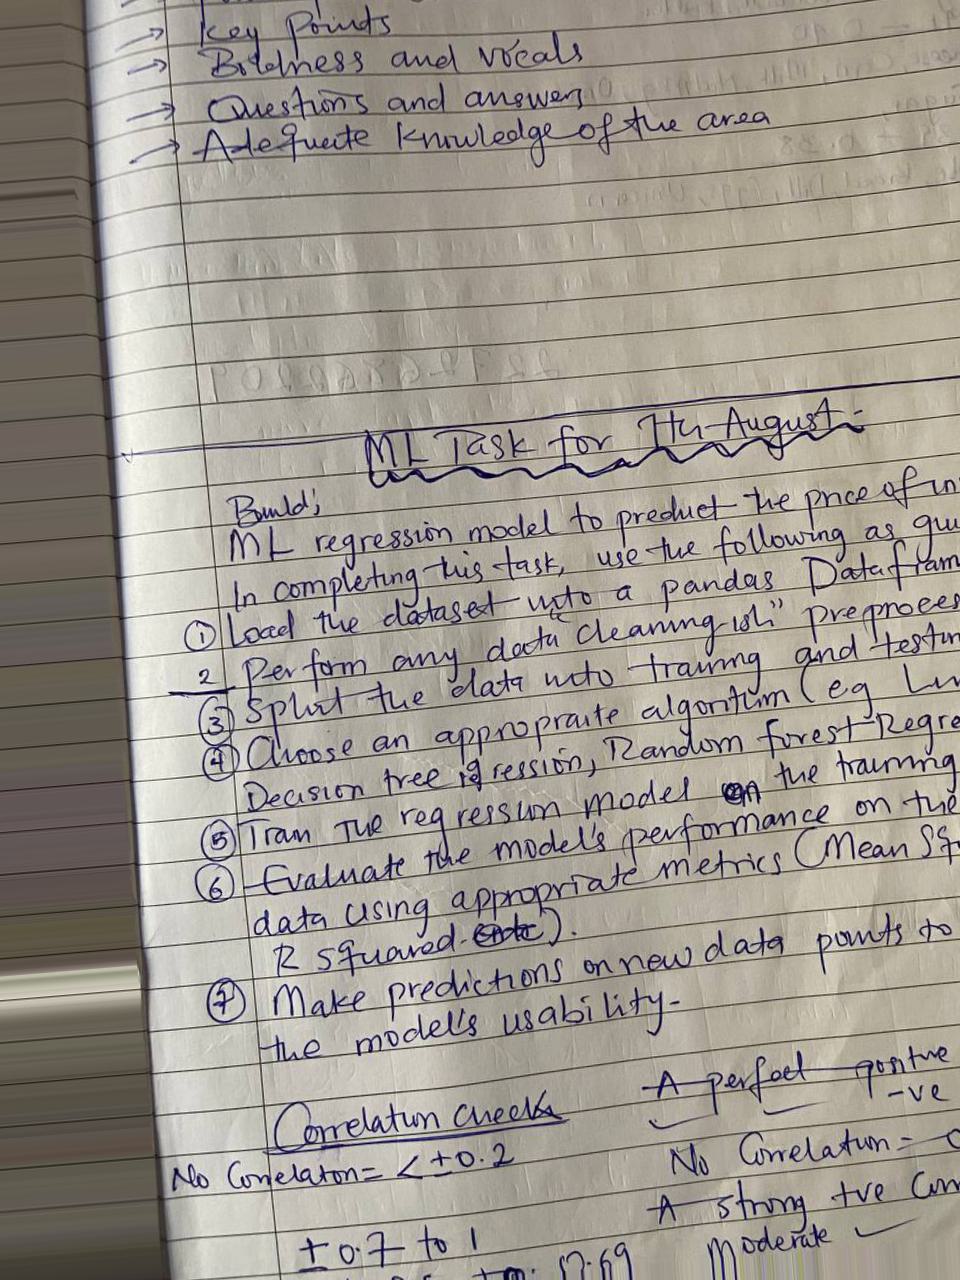 → Key Points
→ Boldness and vocals
→ Questions and answers
→ Adequate knowledge of the area
ML Task for August:-
Build;
ML regression model to predict the price of
In completing this task, use the following as
① Load the dataset into a pandas Datafram
2 Perform any data cleaning preproces
③ Split the data into training and testin
④ Choose an appropraite algorithm (eg
Decision tree regression, Random forest Regre
⑤ Train the regression model on the training
⑥ Evaluate the model's performance on the
data using appropriate metrics (Mean Sq
R squared. etc).
⑦ Make predictions on new data points to
the model's usability-
Correlation checks
-A perfect positive
-ve
No Correlaton = < ±0.2
No Correlation =
A strong +ve
±0.7 to 1
Moderate